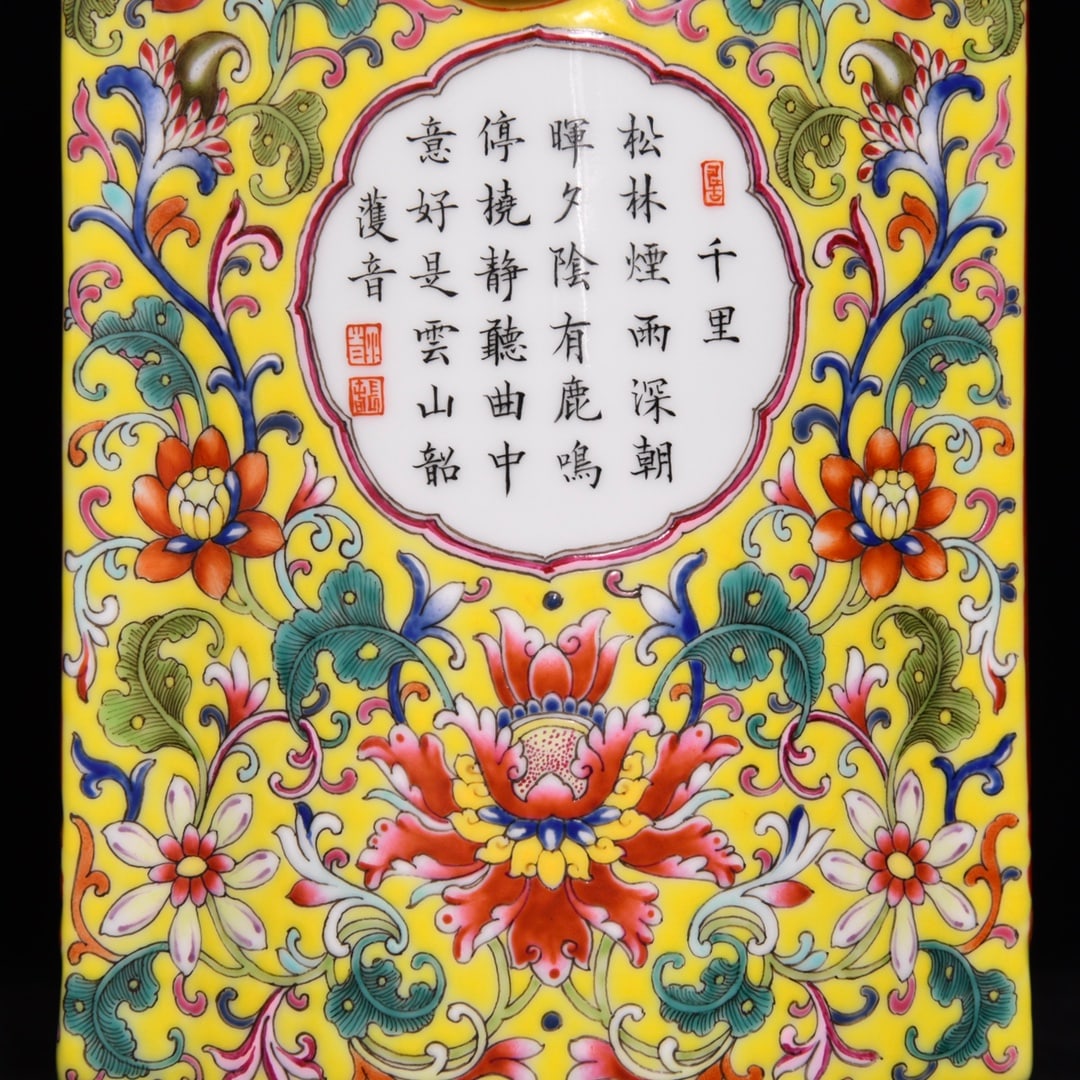 千里
松林煙雨深朝
暉夕陰有鹿鳴
停橈静聽曲中
意好是雲山韶
濩音